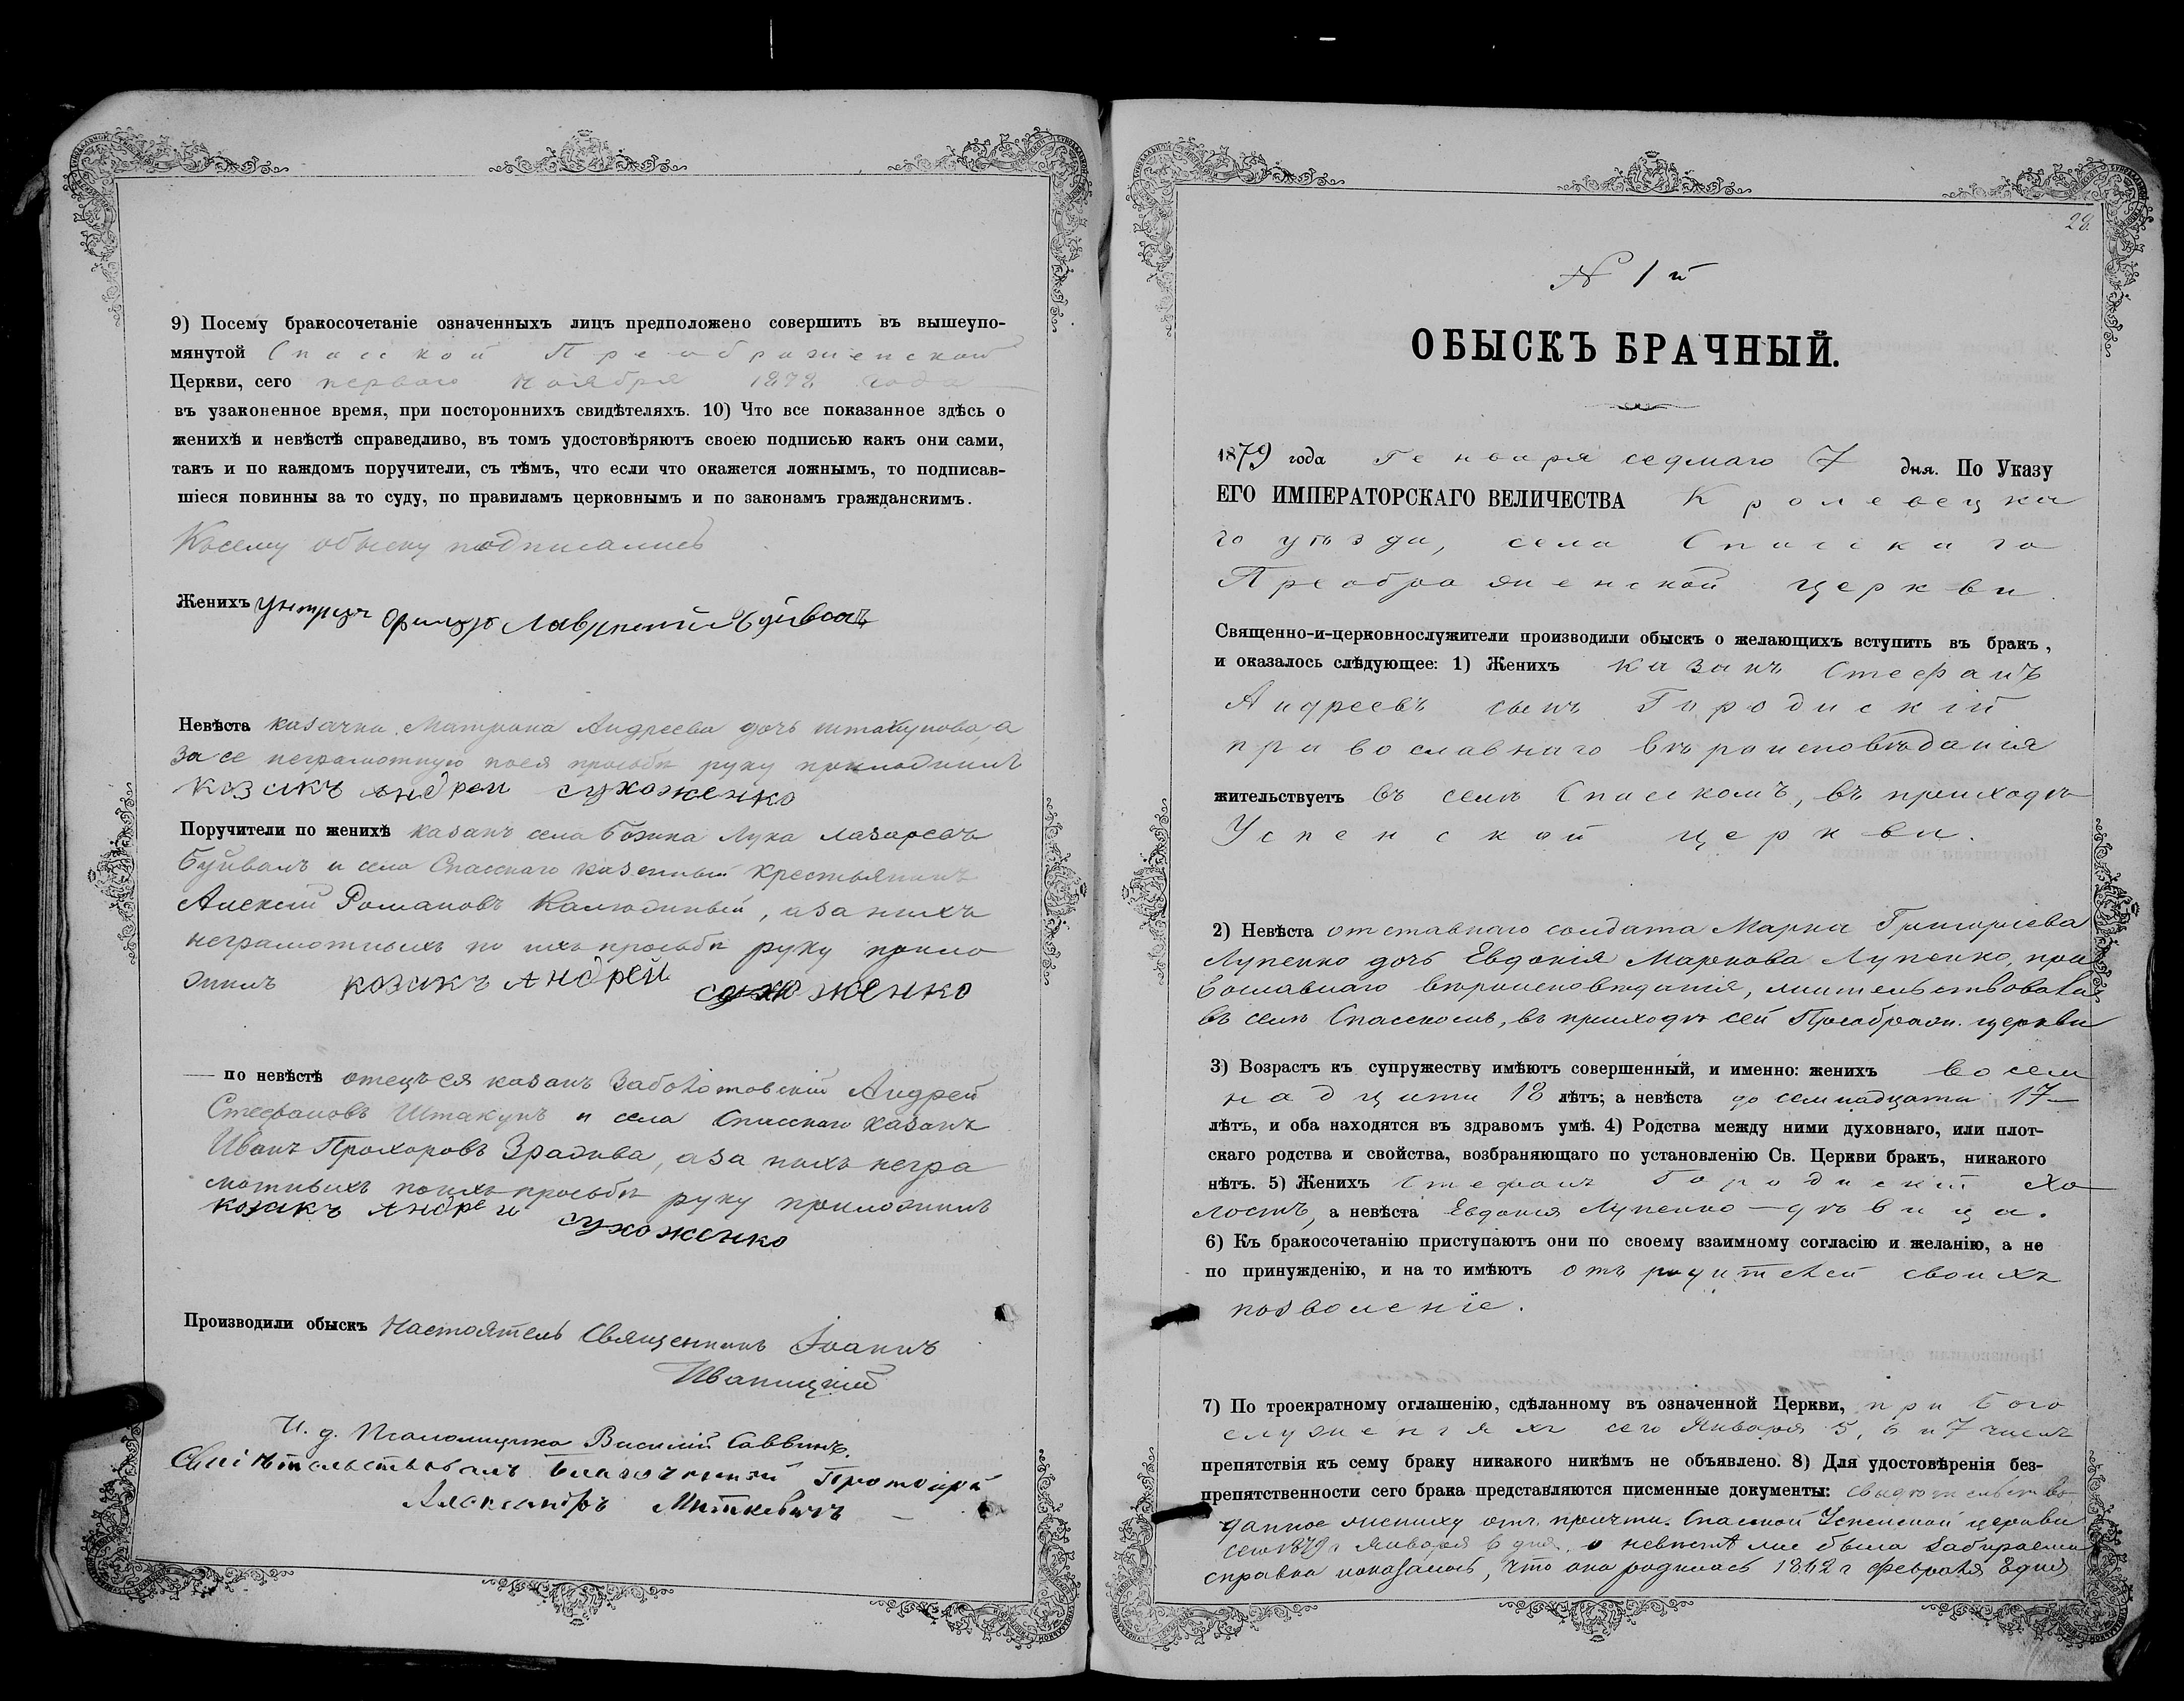 9) Посему бракосочетаніе означенныхъ лицъ предположено совершить въ вышеупо-
мянутой Спасской Преображенской
Церкви, сего перваго Ноября 1878 года
въ узаконенное время, при постороннихъ свидѣтеляхъ. 10) Что все показанное здѣсь о
женихѣ и невѣстѣ справедливо, въ томъ удостовѣряютъ своею подписью какъ они сами,
такъ и по каждомъ поручители, съ тѣмъ, что если что окажется ложнымъ, то подписав-
шіеся повинны за то суду, по правиламъ церковнымъ и по законамъ гражданскимъ.
Ксему обыску подписались
Женихъ
Невѣста казачка Матрона Андреева дочь Штакунова, а
за ее неграмотную поея просьбѣ руку приложилъ
козакъ Андреи сухоженко
Поручители по женихѣ казакъ села Лука Лазаревъ
Буйвалъ и села Спасскаго казенный крестьянинъ
Алексѣй Романовъ, а за нихъ
неграмотныхъ по ихъ просьбѣ руку прило
жилъ козакъ Андрей сухоженко
— по невѣстѣ отецъ ея казакъ Заболотовскій Андрей
Стефановъ Штакунъ и села Спасскаго казакъ
Иванъ Прохоровъ Зрадива, а за нихъ негра
мотныхъ поихъ просьбѣ руку приложилъ
козакъ Андреи сухоженко
Производили обыскъ Настоятель Священникъ Іоаннъ
Иваницкій
И. д. Псаломщика Василій Саввинъ.
Свидѣтельствовалъ Благочинный Протоіерей
Александръ Миткевичъ
28
N 1й
ОБЫСКЪ БРАЧНЫЙ.
1879 года Генваря седмаго 7 дня. По Указу
ЕГО ИМПЕРАТОРСКАГО ВЕЛИЧЕСТВА Кролевецка
го уѣзда, села Спасскаго
Преображенской церкви
Священно-и-церковнослужители производили обыскъ о желающихъ вступить въ бракъ,
и оказалось слѣдующее: 1) Женихъ казакъ Стефанъ
Андреевъ сынъ Городискій
православнаго вѣроисповѣданія
жительствуетъ въ селѣ Спасскомъ, въ приходѣ
Успенской церкви.
2) Невѣста отставнаго солдата Марка Григоріева
Лупенко дочь Евдокія Маркова Лупенко, пра
вославнаго вѣроисповѣданія, жительствовала
въ селѣ Спасскомъ, въ приходѣ сей Преображ. церкви
3) Возрастъ къ супружеству имѣютъ совершенный, и именно: женихъ восем
надцати 18 лѣтъ; а невѣста до семнадцати 17
лѣтъ, и оба находятся въ здравомъ умѣ. 4) Родства между ними духовнаго, или плот-
скаго родства и свойства, возбраняющаго по установленію Св. Церкви бракъ, никакого
нѣтъ. 5) Женихъ Стефанъ Городискій хо
лостъ, а невѣста Евдокія Лупенко — дѣвица.
6) Къ бракосочетанію приступаютъ они по своему взаимному согласію и желанію, а не
по принужденію, и на то имѣютъ отъ родителей своихъ
позволеніе.
7) По троекратному оглашенію, сдѣланному въ означенной Церкви, при бого
служеніяхъ сего Января 5, 6 и 7 числъ
препятствія къ сему браку никакого никѣмъ не объявлено. 8) Для удостовѣренія без-
препятственности сего брака представляются писменные документы: свидѣтельство
данное жениху отъ причта Спасской Успенской церкви
сего 1879 г Января 6 дня, о невѣстѣ же была забираема
справка показалось, что она родилась 1862 г Февраля 8 дня